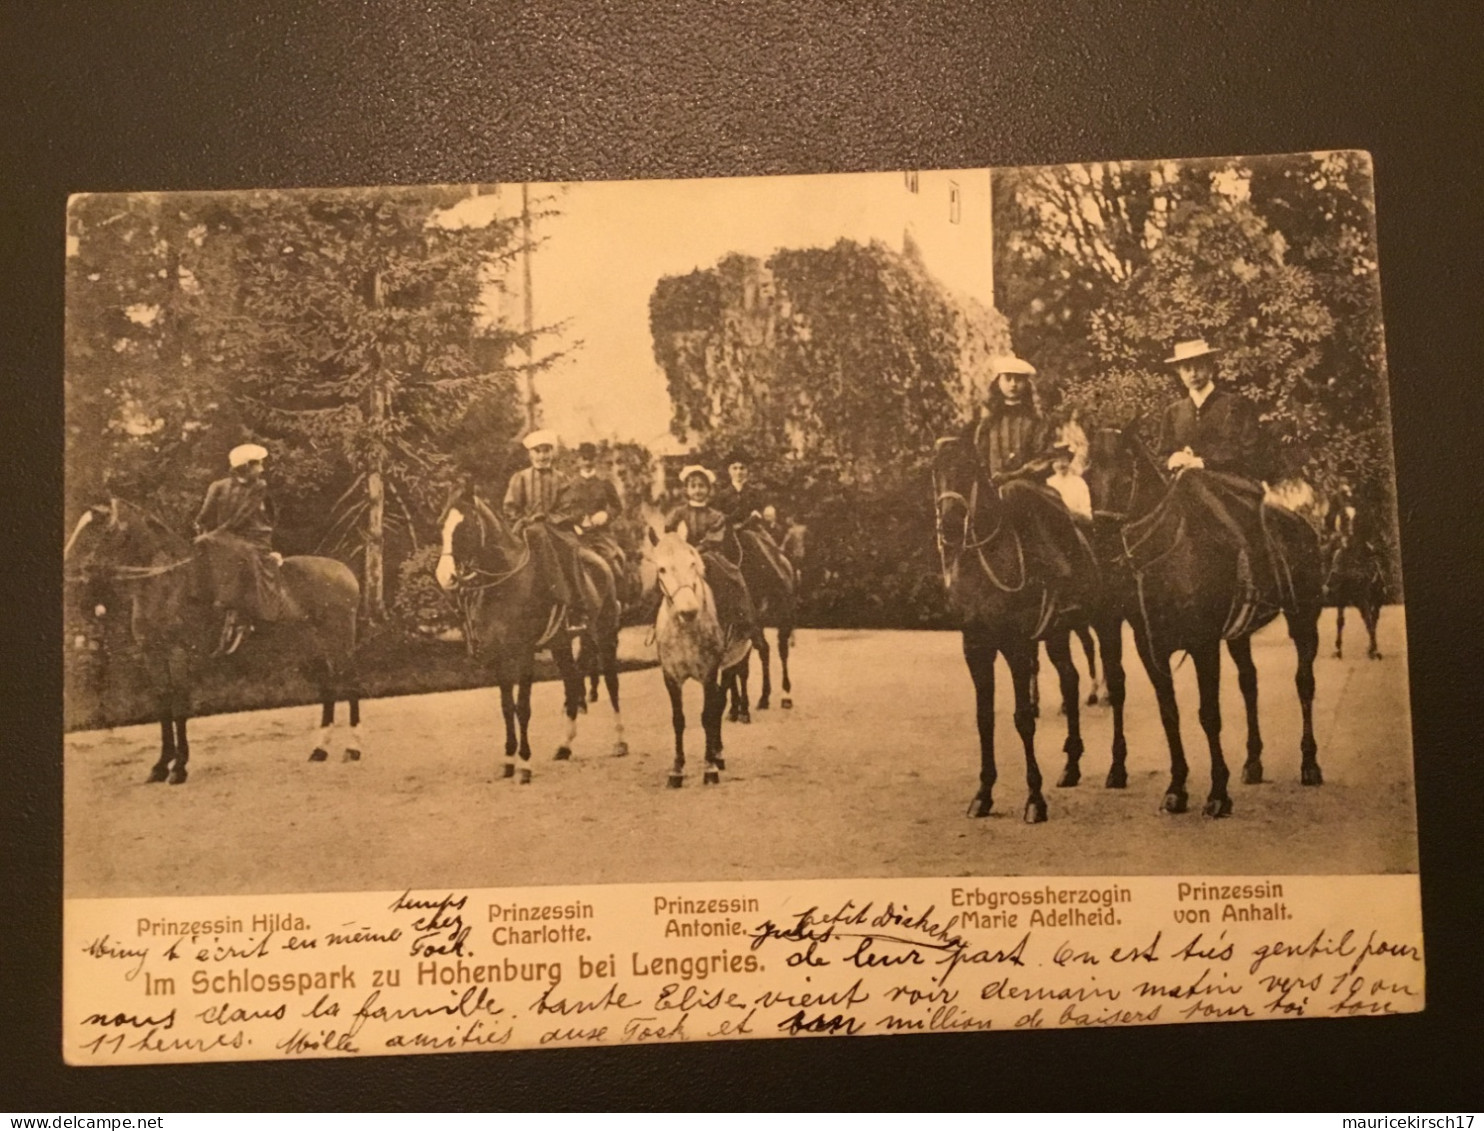 Prinzessin Hilda.
Prinzessin
Charlotte.
Prinzessin
Antonie.
Erbgrossherzogin
Marie Adelheid.
Prinzessin
von Anhalt.
Im Schlosspark zu Hohenburg bei Lenggries.
t'écrit en même temps
chez
Tock.
Jules.
petit
de leur part. On est très gentil pour
nous dans la famille. tante Elise vient voir demain matin vers 10 ou
11 heures. Mille amitiés aux Tock et un million de baisers pour toi ton
mauricekirsch17
delcampe.net